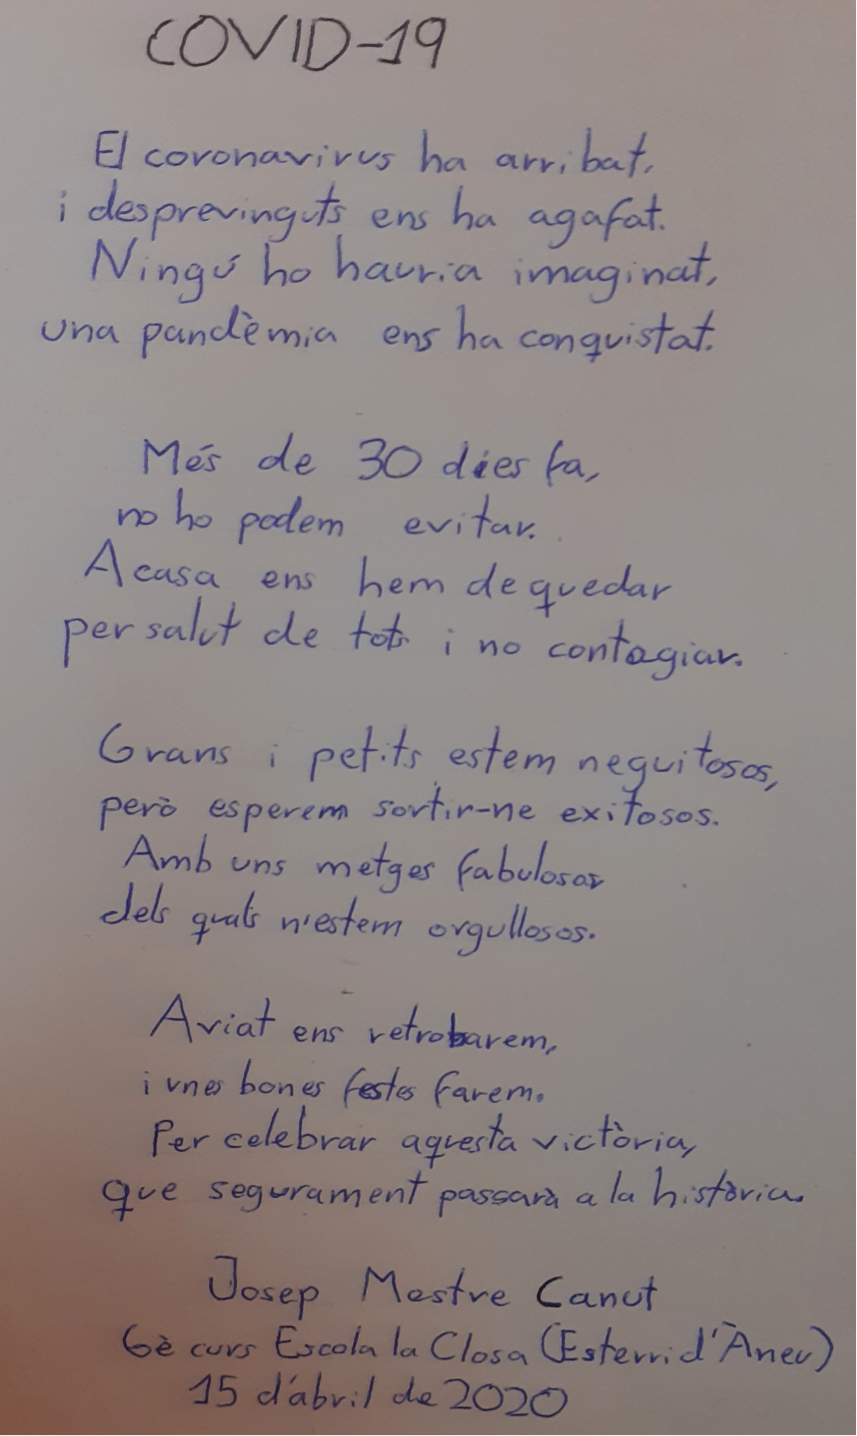 COVID-19
El coronavirus ha arribat,
i desprevinguts ens ha agafat.
Ningú ho hauria imaginat,
una pandèmia ens ha conquistat.
Més de 30 dies fa,
no ho podem evitar.
A casa ens hem de quedar
per salut de tots i no contagiar.
Grans i petits estem neguitosos,
però esperem sortir-ne exitosos.
Amb uns metges fabulosos
dels quals n'estem orgullosos.
Aviat ens retrobarem,
i unes bones festes farem.
Per celebrar aquesta victòria,
que segurament passarà a la història.
Josep Mestre Canut
6è curs Escola la Closa (Esterri d'Àneu)
15 d'abril de 2020